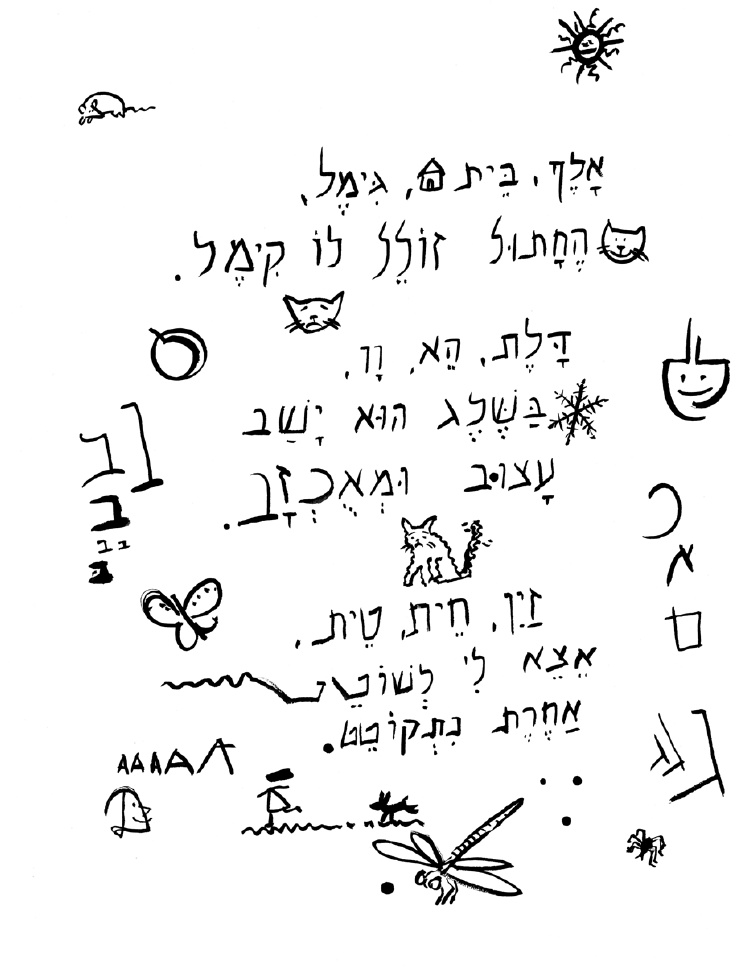 אָלֶף, בֵּית, גִּימֶל,
הֶחָתוּל זוֹלֵל לוֹ קִימֶל.
דָּלֶת, הֵא, וָו,
בַּשֶּׁלֶג הוּא יָשַׁב
עָצוּב וּמְאֻכְזָב.
ב
ב ב
א
זַיִן, חֵית, טֵית,
אֵצֵא לִי לְשׁוֹטֵט
אַחֶרֶת נִתְקוֹטֵט.
AAAAA